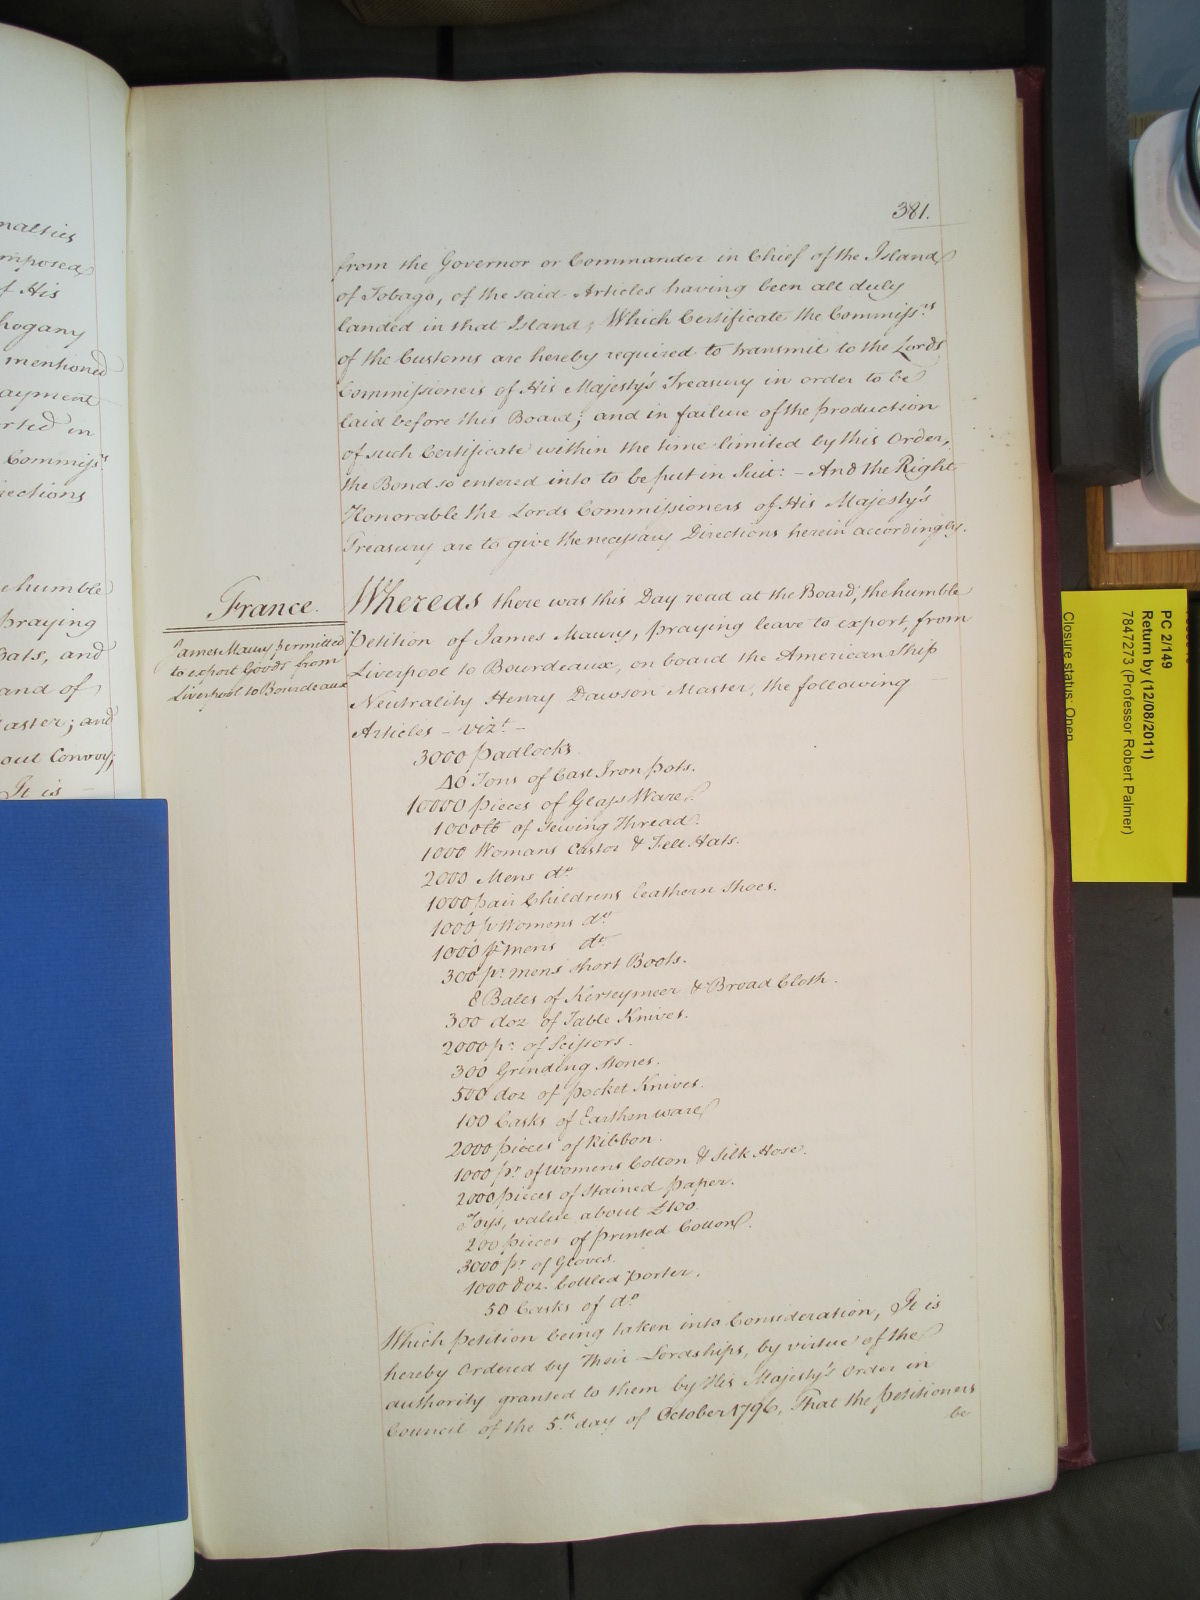 nalties
mposed
f His
hogany
mentioned
ayment
rted in
Commiss.rs
rections
humble
praying
oats, and
and of
aster; and
out Convoy;
It is
381.
from the Governor or Commander in Chief of the Island
of Tobago, of the said Articles having been all duly
landed in that Island; Which Certificate the Commiss.rs
of the Customs are hereby required to transmit to the Lords
Commissioners of His Majesty's Treasury in order to be
laid before this Board; and in failure of the production
of such Certificate within the time limited by this Order,
the Bond so entered into to be put in Suit: - And the Right
Honorable the Lords Commissioners of His Majesty's
Treasury are to give the necessary Directions herein accordingly.
France.
James Maury permitted
to export Goods from
Liverpool to Bourdeaux
Whereas there was this Day read at the Board, the humble
Petition of James Maury, praying leave to export, from
Liverpool to Bourdeaux, on board the American Ship
Neutrality Henry Dawson Master, the following
Articles - vizt. -
3000 Padlocks
40 Tons of Cast Iron Pots.
10000 pieces of Glass Ware.
1000 lb of Sewing Thread.
1000 Womans Castor & Felt Hats.
2000 Mens do.
1000 pair Childrens Leathern Shoes.
1000 pr Womens do.
1000 pr mens do.
300 pr. mens short Boots.
8 Bales of Kerseymeer & Broad Cloth.
300 doz of Table Knives.
2000 pr. of Scissors.
300 Grinding Stones.
500 doz of pocket Knives.
100 Casks of Earthen ware
2000 pieces of Ribbon.
1000 pr. of womens Cotton & Silk Hose.
2000 pieces of Stained paper.
Toys, value about £100.
200 pieces of printed Cotton.
3000 pr. of Gloves.
1000 doz. bottled Porter.
50 Casks of do.
Which Petition being taken into Consideration, It is
hereby Ordered by Their Lordships, by virtue of the
authority granted to them by His Majesty's Order in
Council of the 5.th day of October 1796, That the Petitioners
be
PC 2/149
Return by (12/08/2011)
7847273 (Professor Robert Palmer)
Closure status: Open